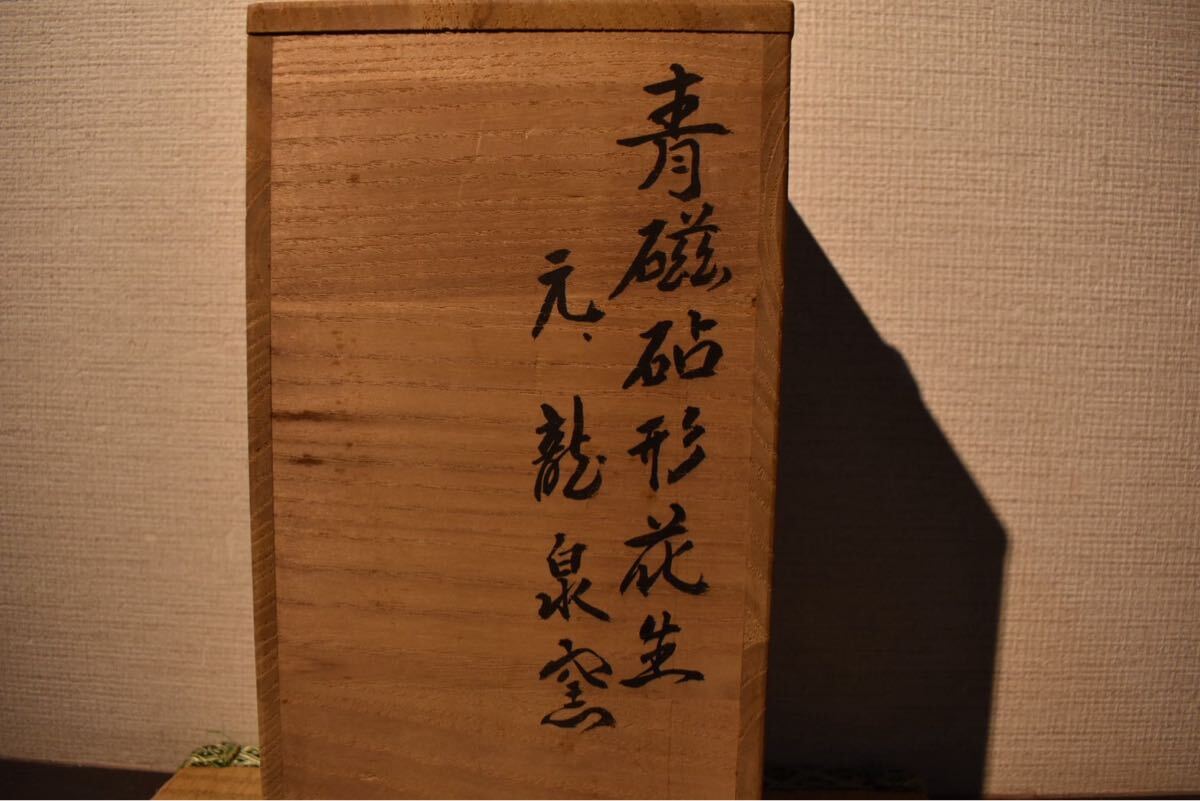 青磁砧形花生
元、龍泉窯